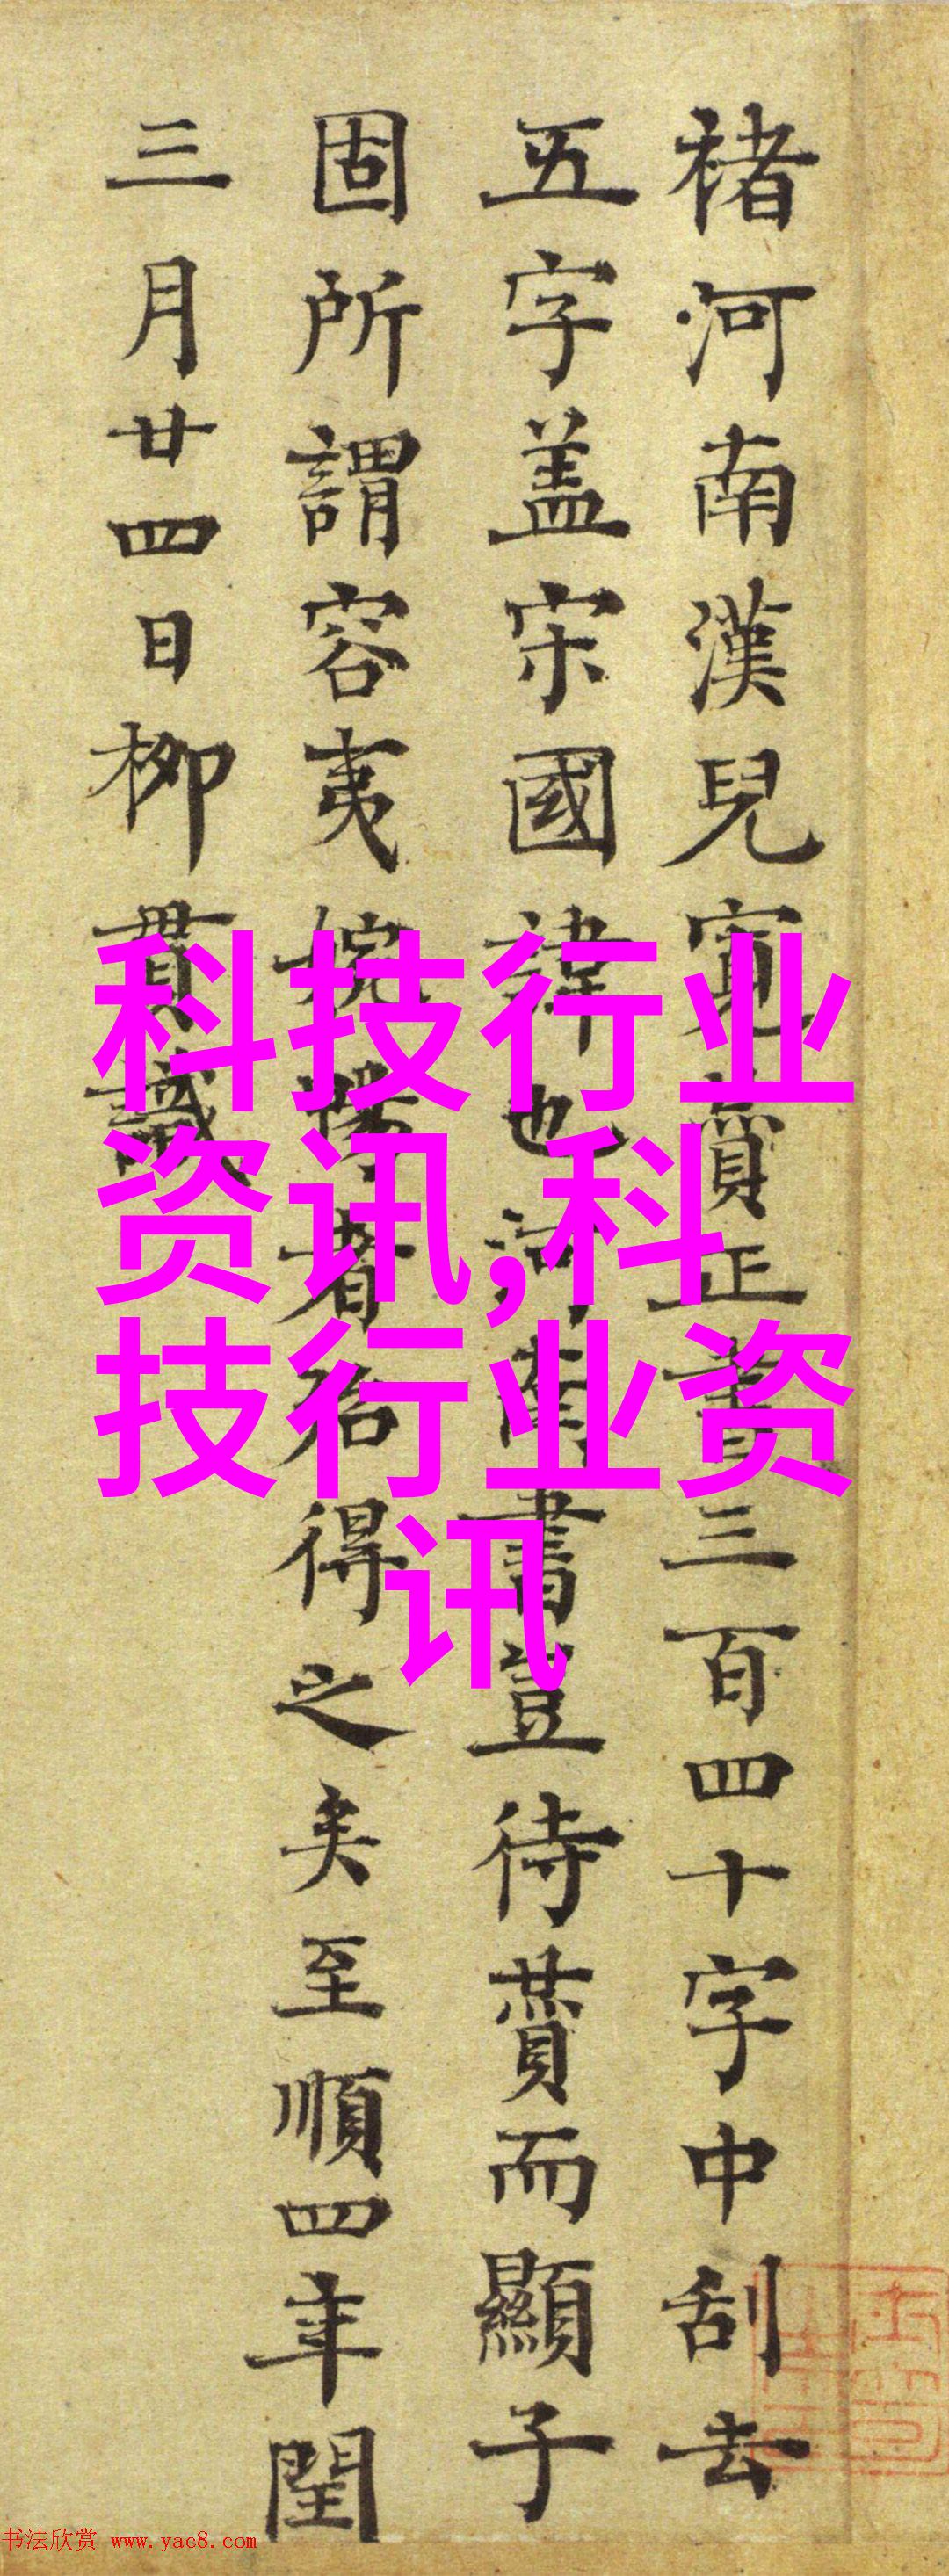 褚河南漢兒寬贊正書三百四十字中刮去
五字盖宋國諱也河南書豈待贊而顯子
固所謂容夷婉暢者為得之矣至順四年閏
三月廿四日柳貫識
科技行业
资讯,科
技行业资
讯
书法欣赏 www.yac8.com